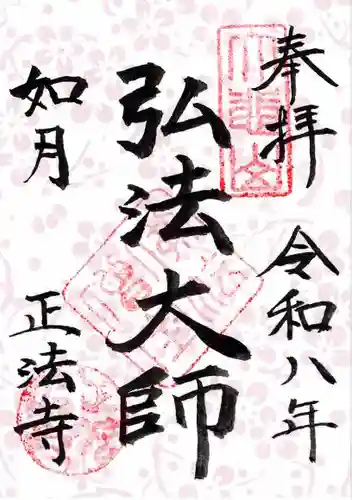 奉拝
令和八年
弘法大師
如月
正法寺